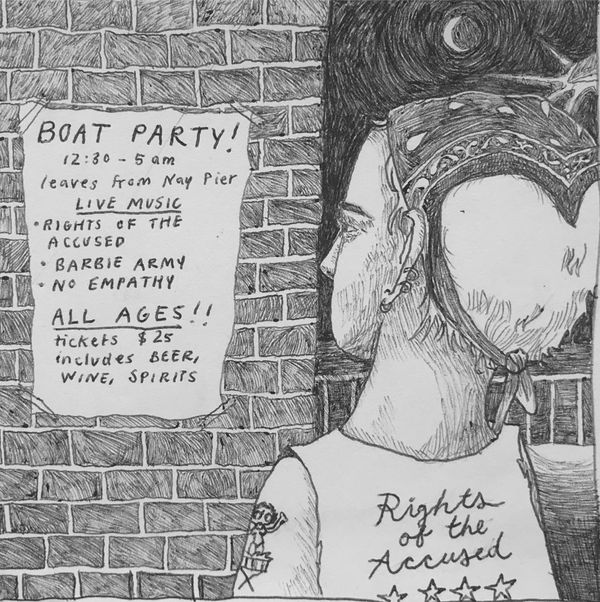 BOAT PARTY!
12:30 - 5am
leaves from Nay Pier
LIVE MUSIC
• RIGHTS OF THE
ACCUSED
• BARBIE ARMY
• NO EMPATHY
ALL AGES!!
tickets $25
includes BEER,
WINE, SPIRITS
Rights
of the
Accused